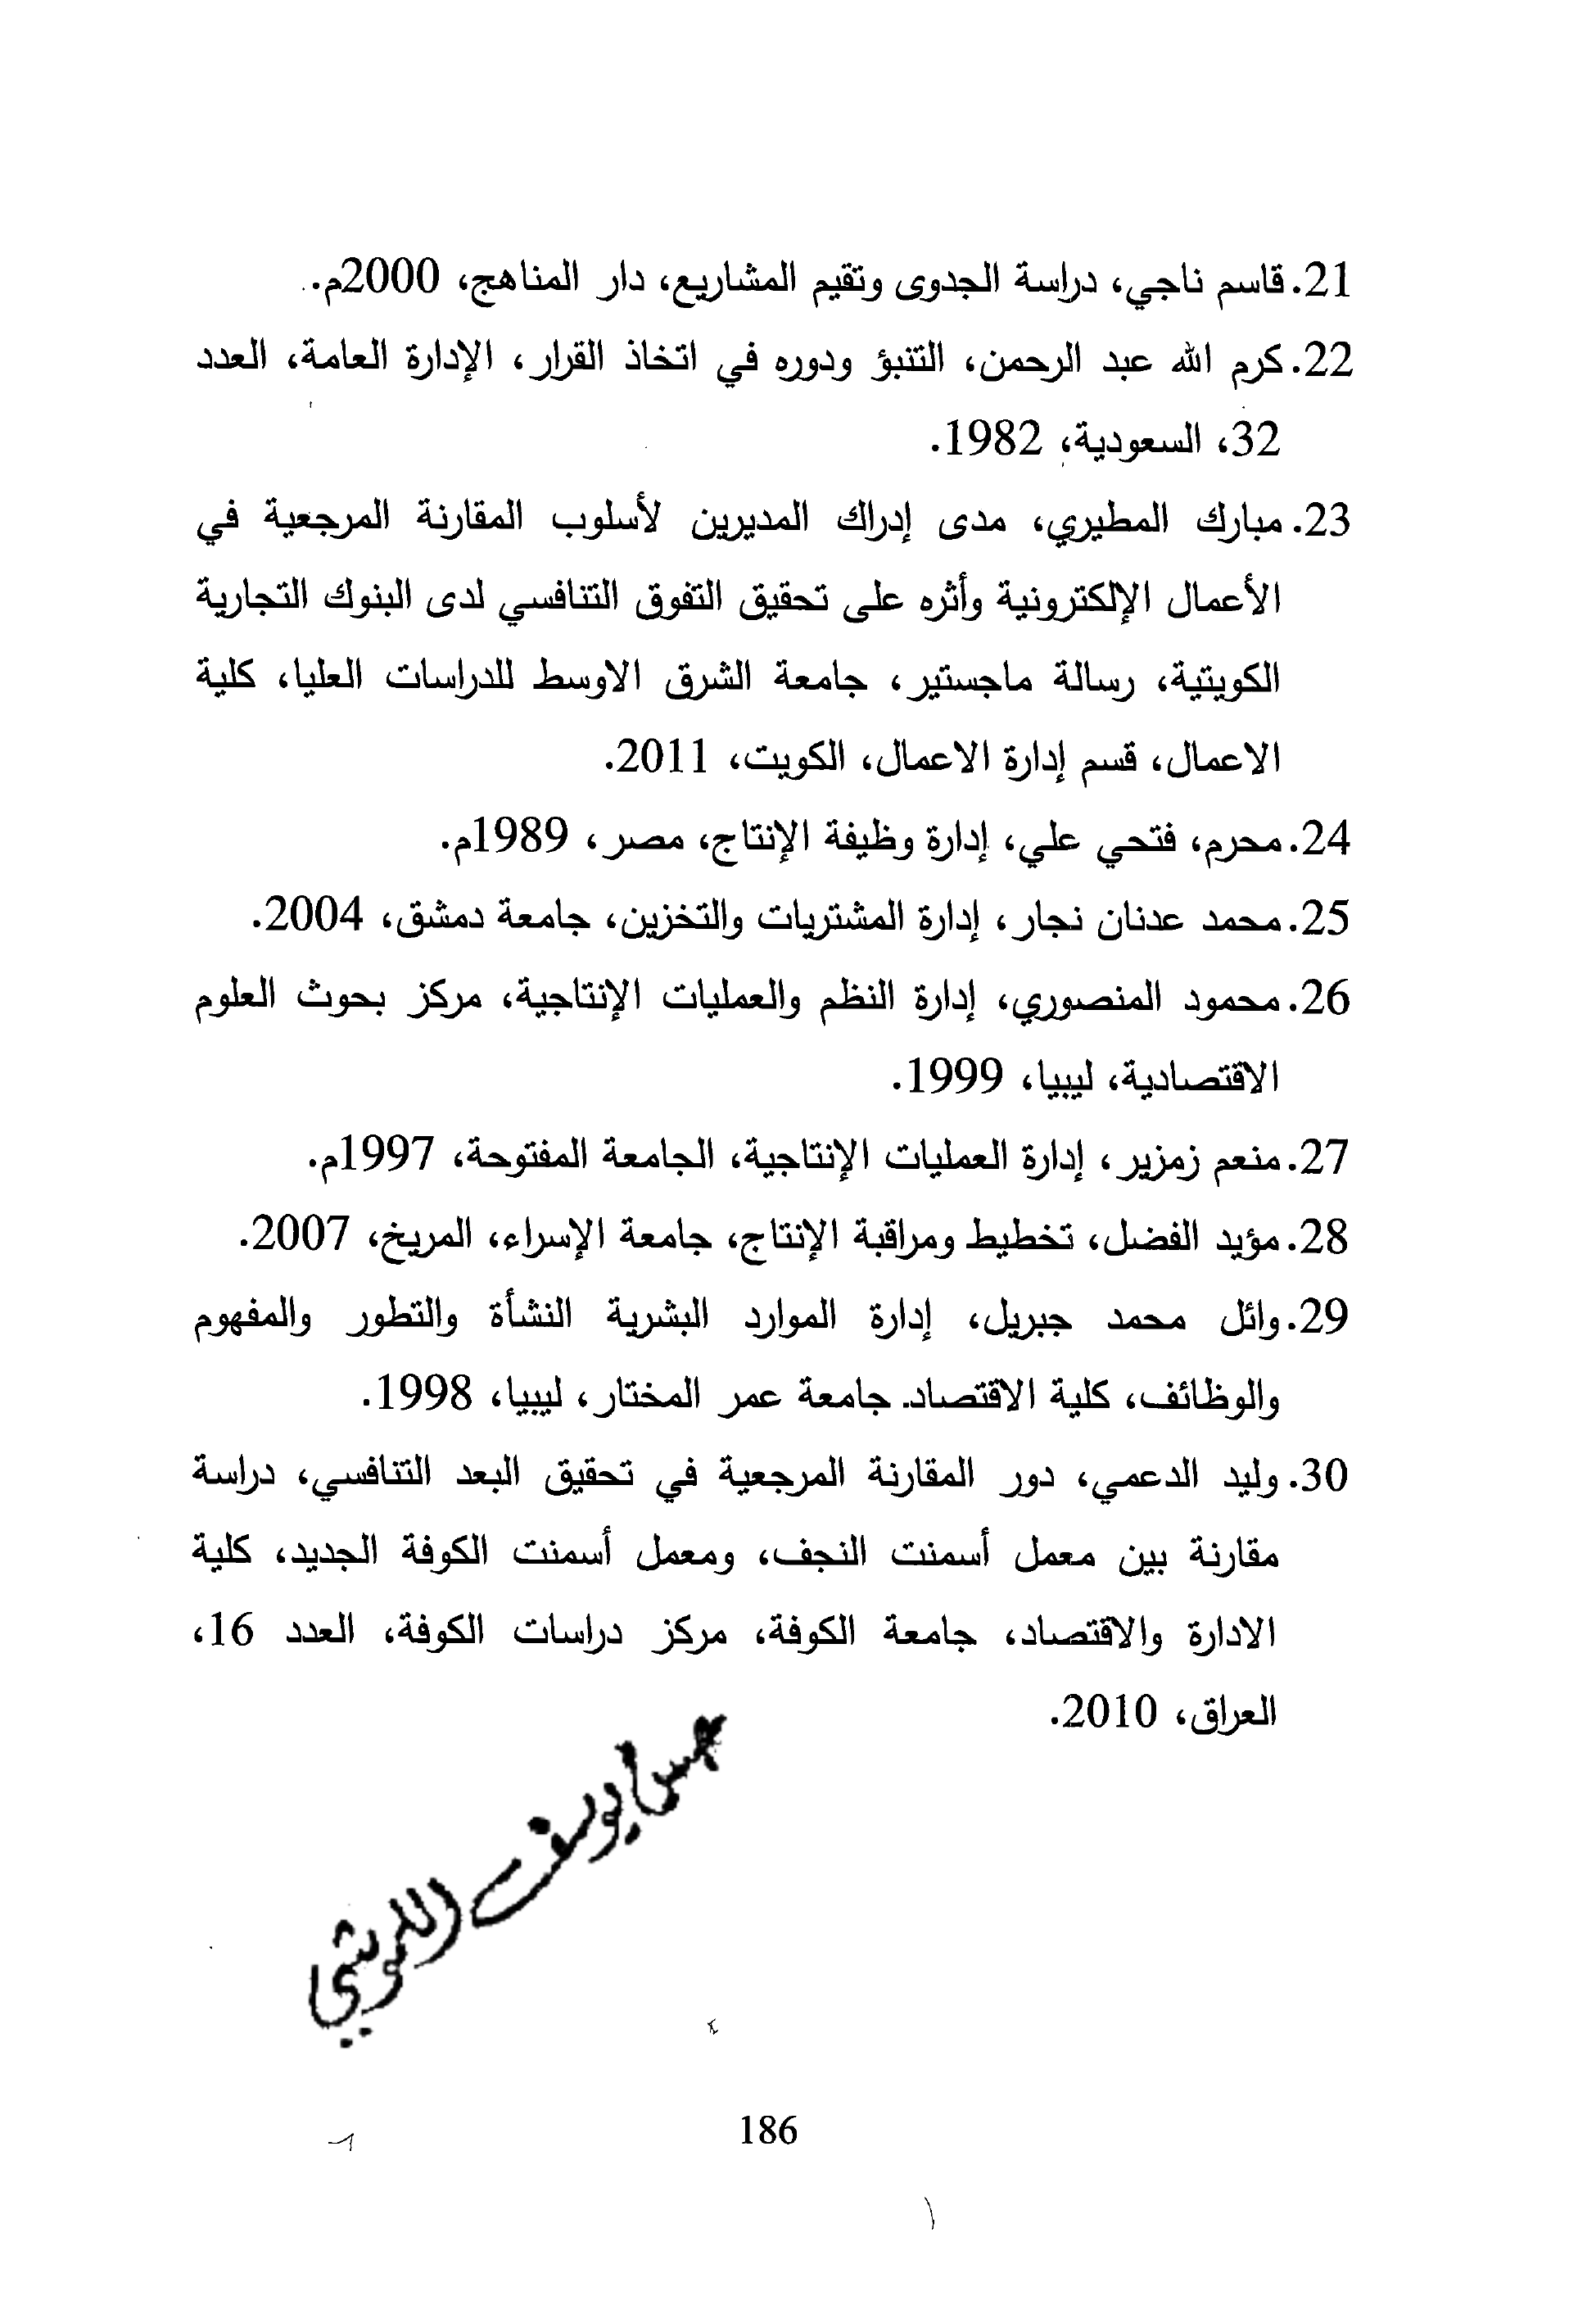 21. قاسم ناجي، دراسة الجدوى وتقيم المشاريع، دار المناهج، 2000م.
22. كرم الله عبد الرحمن، التنبؤ ودوره في اتخاذ القرار، الإدارة العامة، العدد
32، السعودية، 1982.
23. مبارك المطيري، مدى إدراك المديرين لأسلوب المقارنة المرجعية في
الأعمال الإلكترونية وأثره على تحقيق التفوق التنافسي لدى البنوك التجارية
الكويتية، رسالة ماجستير، جامعة الشرق الاوسط للدراسات العليا، كلية
الاعمال، قسم إدارة الاعمال، الكويت، 2011.
24. محرم، فتحي علي، إدارة وظيفة الإنتاج، مصر، 1989م.
25. محمد عدنان نجار، إدارة المشتريات والتخزين، جامعة دمشق، 2004.
26. محمود المنصوري، إدارة النظم والعمليات الإنتاجية، مركز بحوث العلوم
الاقتصادية، ليبيا، 1999.
27. منعم زمزير، إدارة العمليات الإنتاجية، الجامعة المفتوحة، 1997م.
28. مؤيد الفضل، تخطيط ومراقبة الإنتاج، جامعة الإسراء، المريخ، 2007.
29. وائل محمد جبريل، إدارة الموارد البشرية النشأة والتطور والمفهوم
والوظائف، كلية الاقتصاد. جامعة عمر المختار، ليبيا، 1998.
30. وليد الدعمي، دور المقارنة المرجعية في تحقيق البعد التنافسي، دراسة
مقارنة بين معمل أسمنت النجف، ومعمل أسمنت الكوفة الجديد، كلية
الادارة والاقتصاد، جامعة الكوفة، مركز دراسات الكوفة، العدد 16،
العراق، 2010.
يوسف
186